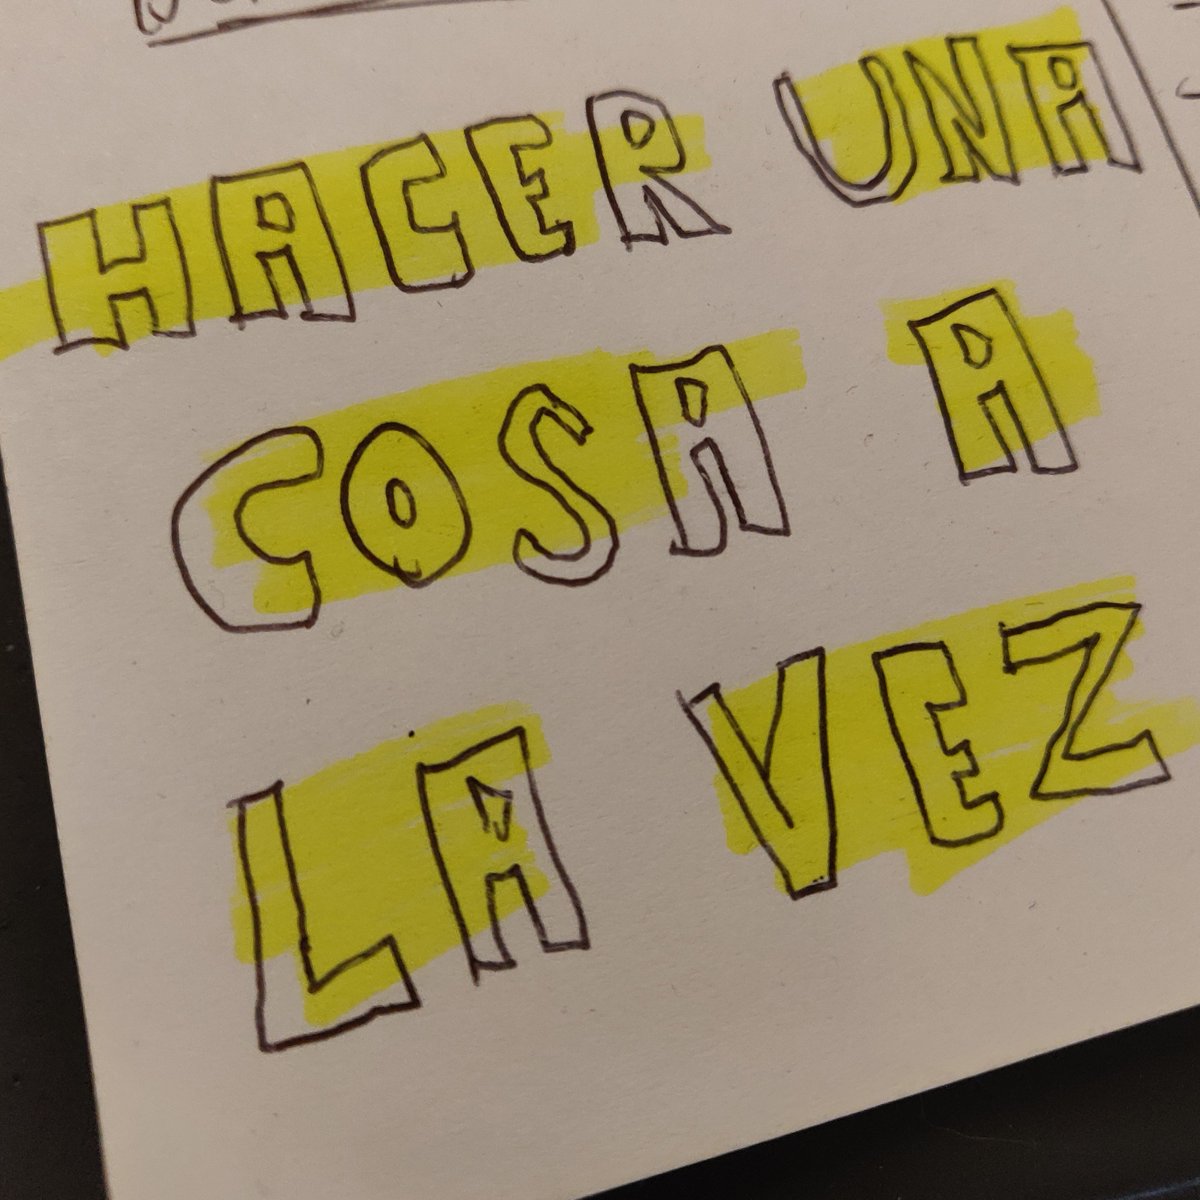 HACER UNA
COSA A
LA VEZ